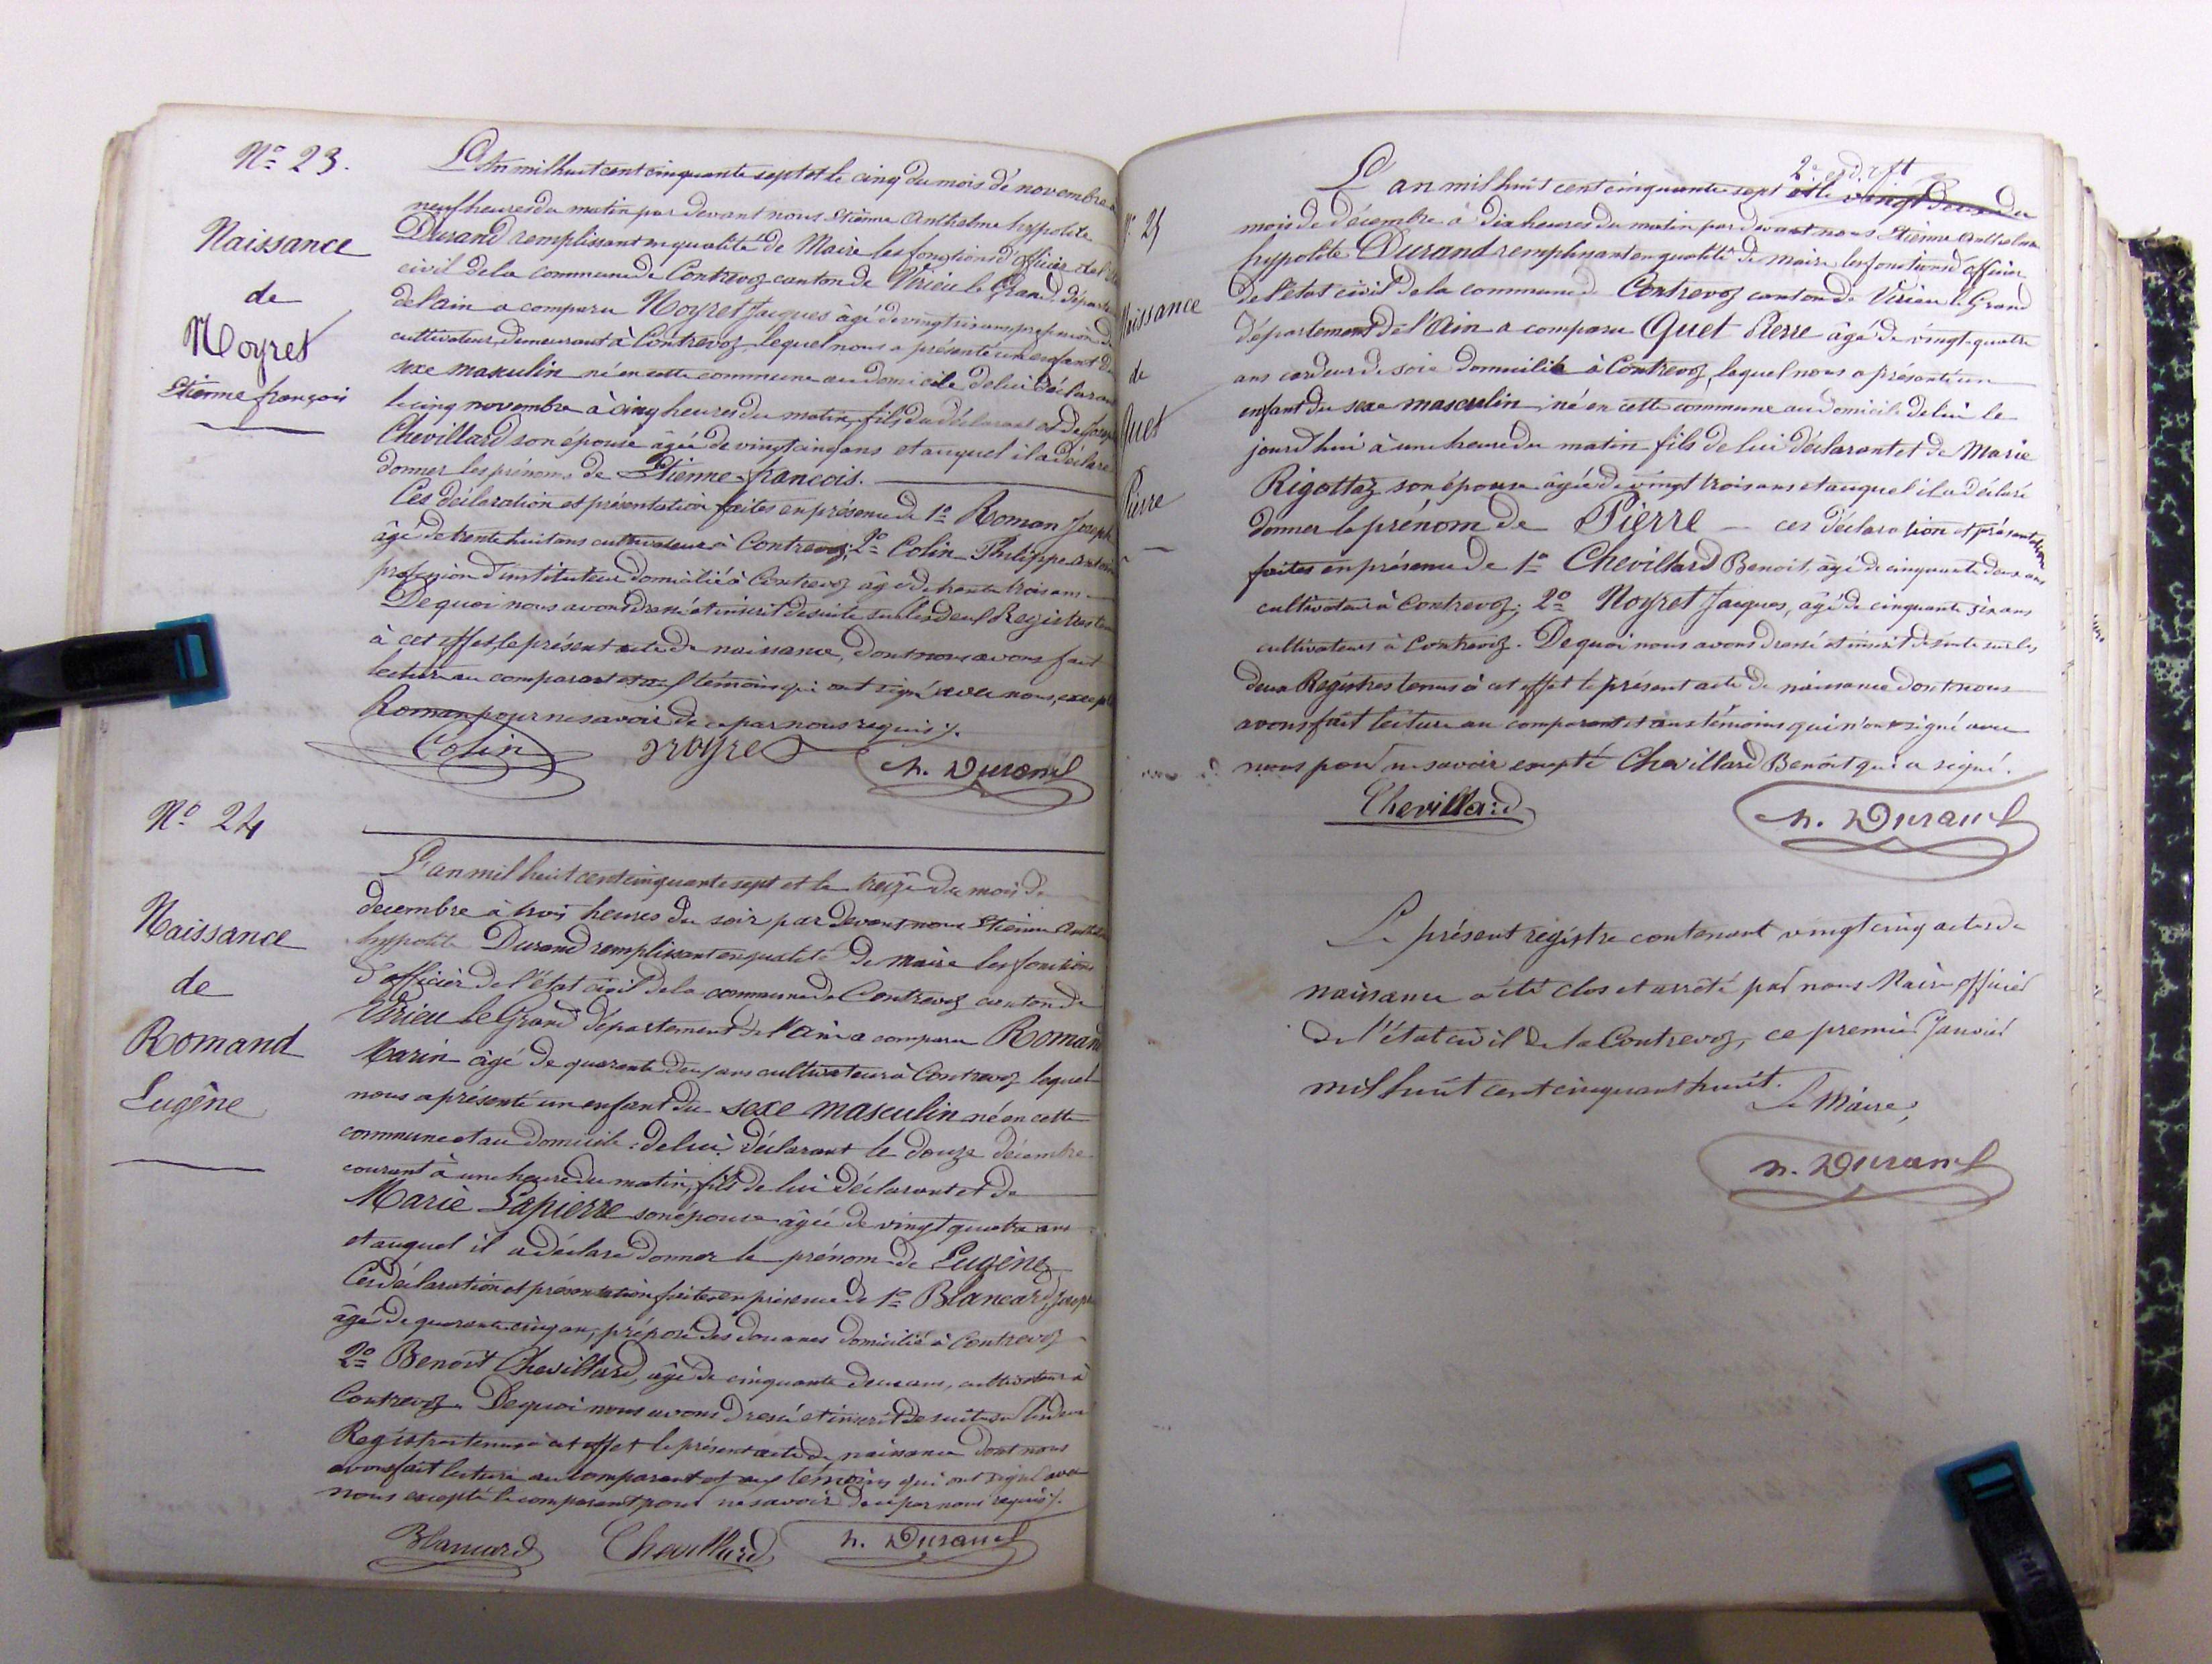 Nº 23.
Naissance
de
Noyret
Etienne françois
L'An mil huit cent cinquante sept et le cinq du mois de novembre à
neuf heures du matin par devant nous Etienne Anthelme hyppolite
Durand remplissant en qualité de Maire les fonctions d'officier de l'état
civil de la commune de Contrevoz canton de Virieu le Grand, département
de l'ain a comparu Noyret Jacques âgé de vingt six ans, profession de
cultivateur, demeurant à Contrevoz, lequel nous a présenté un enfant du
sexe masculin né en cette commune au domicile de lui déclarant
le cinq novembre à cinq heures du matin, fils du déclarant et de
Chevillard son épouse âgée de vingt cinq ans et auquel il a déclaré
donner les prénoms de Etienne-françois.
Ces déclaration et présentation faites en présence de 1º Roman Joseph
âgé de trente huit ans cultivateur à Contrevoz, 2º Colin Philippe
profession d'instituteur domicilié à Contrevoz âgé de trente trois ans
De quoi nous avons dressé et inscrit de suite sur les deux Registres tenus
à cet effet, le présent acte de naissance, dont nous avons fait
lecture au comparant et aux témoins qui ont signé avec nous, excepté
Roman pour ne savoir de ce par nous requis ./.
Colin Noyret h. Durand
Nº 24
Naissance
de
Romand
Eugène
L'an mil huit cent cinquante sept et le treize du mois de
decembre à trois heures du soir par devant nous Etienne Anthelme
hyppolite Durand remplissant en qualité de maire les fonctions
d'officier de l'état civil de la commune de Contrevoz canton de
Virieu le Grand département de l'ain a comparu Romand
Marin âgé de quarante deux ans cultivateur à Contrevoz lequel
nous a présenté un enfant du sexe masculin né en cette
commune et au domicile de lui déclarant le douze décembre
courant à une heure du matin, fils de lui déclarant et de
Marie Lapierre son épouse âgée de vingt quatre ans
et auquel il a déclaré donner le prénom de Eugène
Ces déclaration et présentation faites en présence de 1º Blancard Joseph
âgé de quarante cinq ans, préposé des douanes domicilié à Contrevoz
2º Benoît Chevillard, âgé de cinquante deux ans, cultivateur à
Contrevoz. De quoi nous avons dressé et inscrit de suite sur les deux
Registres tenus à cet effet le présent acte de naissance dont nous
avons fait lecture au comparant et aux témoins qui ont signé avec
nous excepté le comparant pour ne savoir de ce par nous requis ./.
Blancard Chevillard h. Durand
Nº 25
Naissance
de
Quet
Pierre
L'an mil huit cent cinquante sept et le vingt deux du
mois de décembre à dix heures du matin par devant nous Etienne Anthelme
hyppolite Durand remplissant en qualité de maire les fonctions d'officier
de l'état civil de la commune de Contrevoz canton de Virieu le Grand
département de l'Ain a comparu Quet Pierre âgé de vingt-quatre
ans cardeur de soie domicilié à Contrevoz, lequel nous a présenté un
enfant du sexe masculin, né en cette commune au domicile de lui le
jourd'hui à une heure du matin fils de lui déclarant et de Marie
Rigottaz son épouse âgée de vingt trois ans et auquel il a déclaré
donner le prénom de Pierre — ces déclaration et présentation
faites en présence de 1º Chevillard Benoit, âgé de cinquante deux ans
cultivateur à Contrevoz; 2º Noyret Jacques, âgé de cinquante six ans
cultivateurs à Contrevoz. De quoi nous avons dressé et inscrit de suite sur les
deux Registres tenus à cet effet le présent acte de naissance dont nous
avons fait lecture au comparant et aux témoins qui n'ont signé avec
nous pour ne savoir excepté Chevillard Benoit qui a signé.
Chevillard h. Durand
Le présent registre contenant vingt cinq actes de
naissance a été clos et arrêté par nous Maire officier
de l'état civil de la Contrevoz, ce premier Janvier
mil huit cent cinquant huit.
Le Maire,
h. Durand